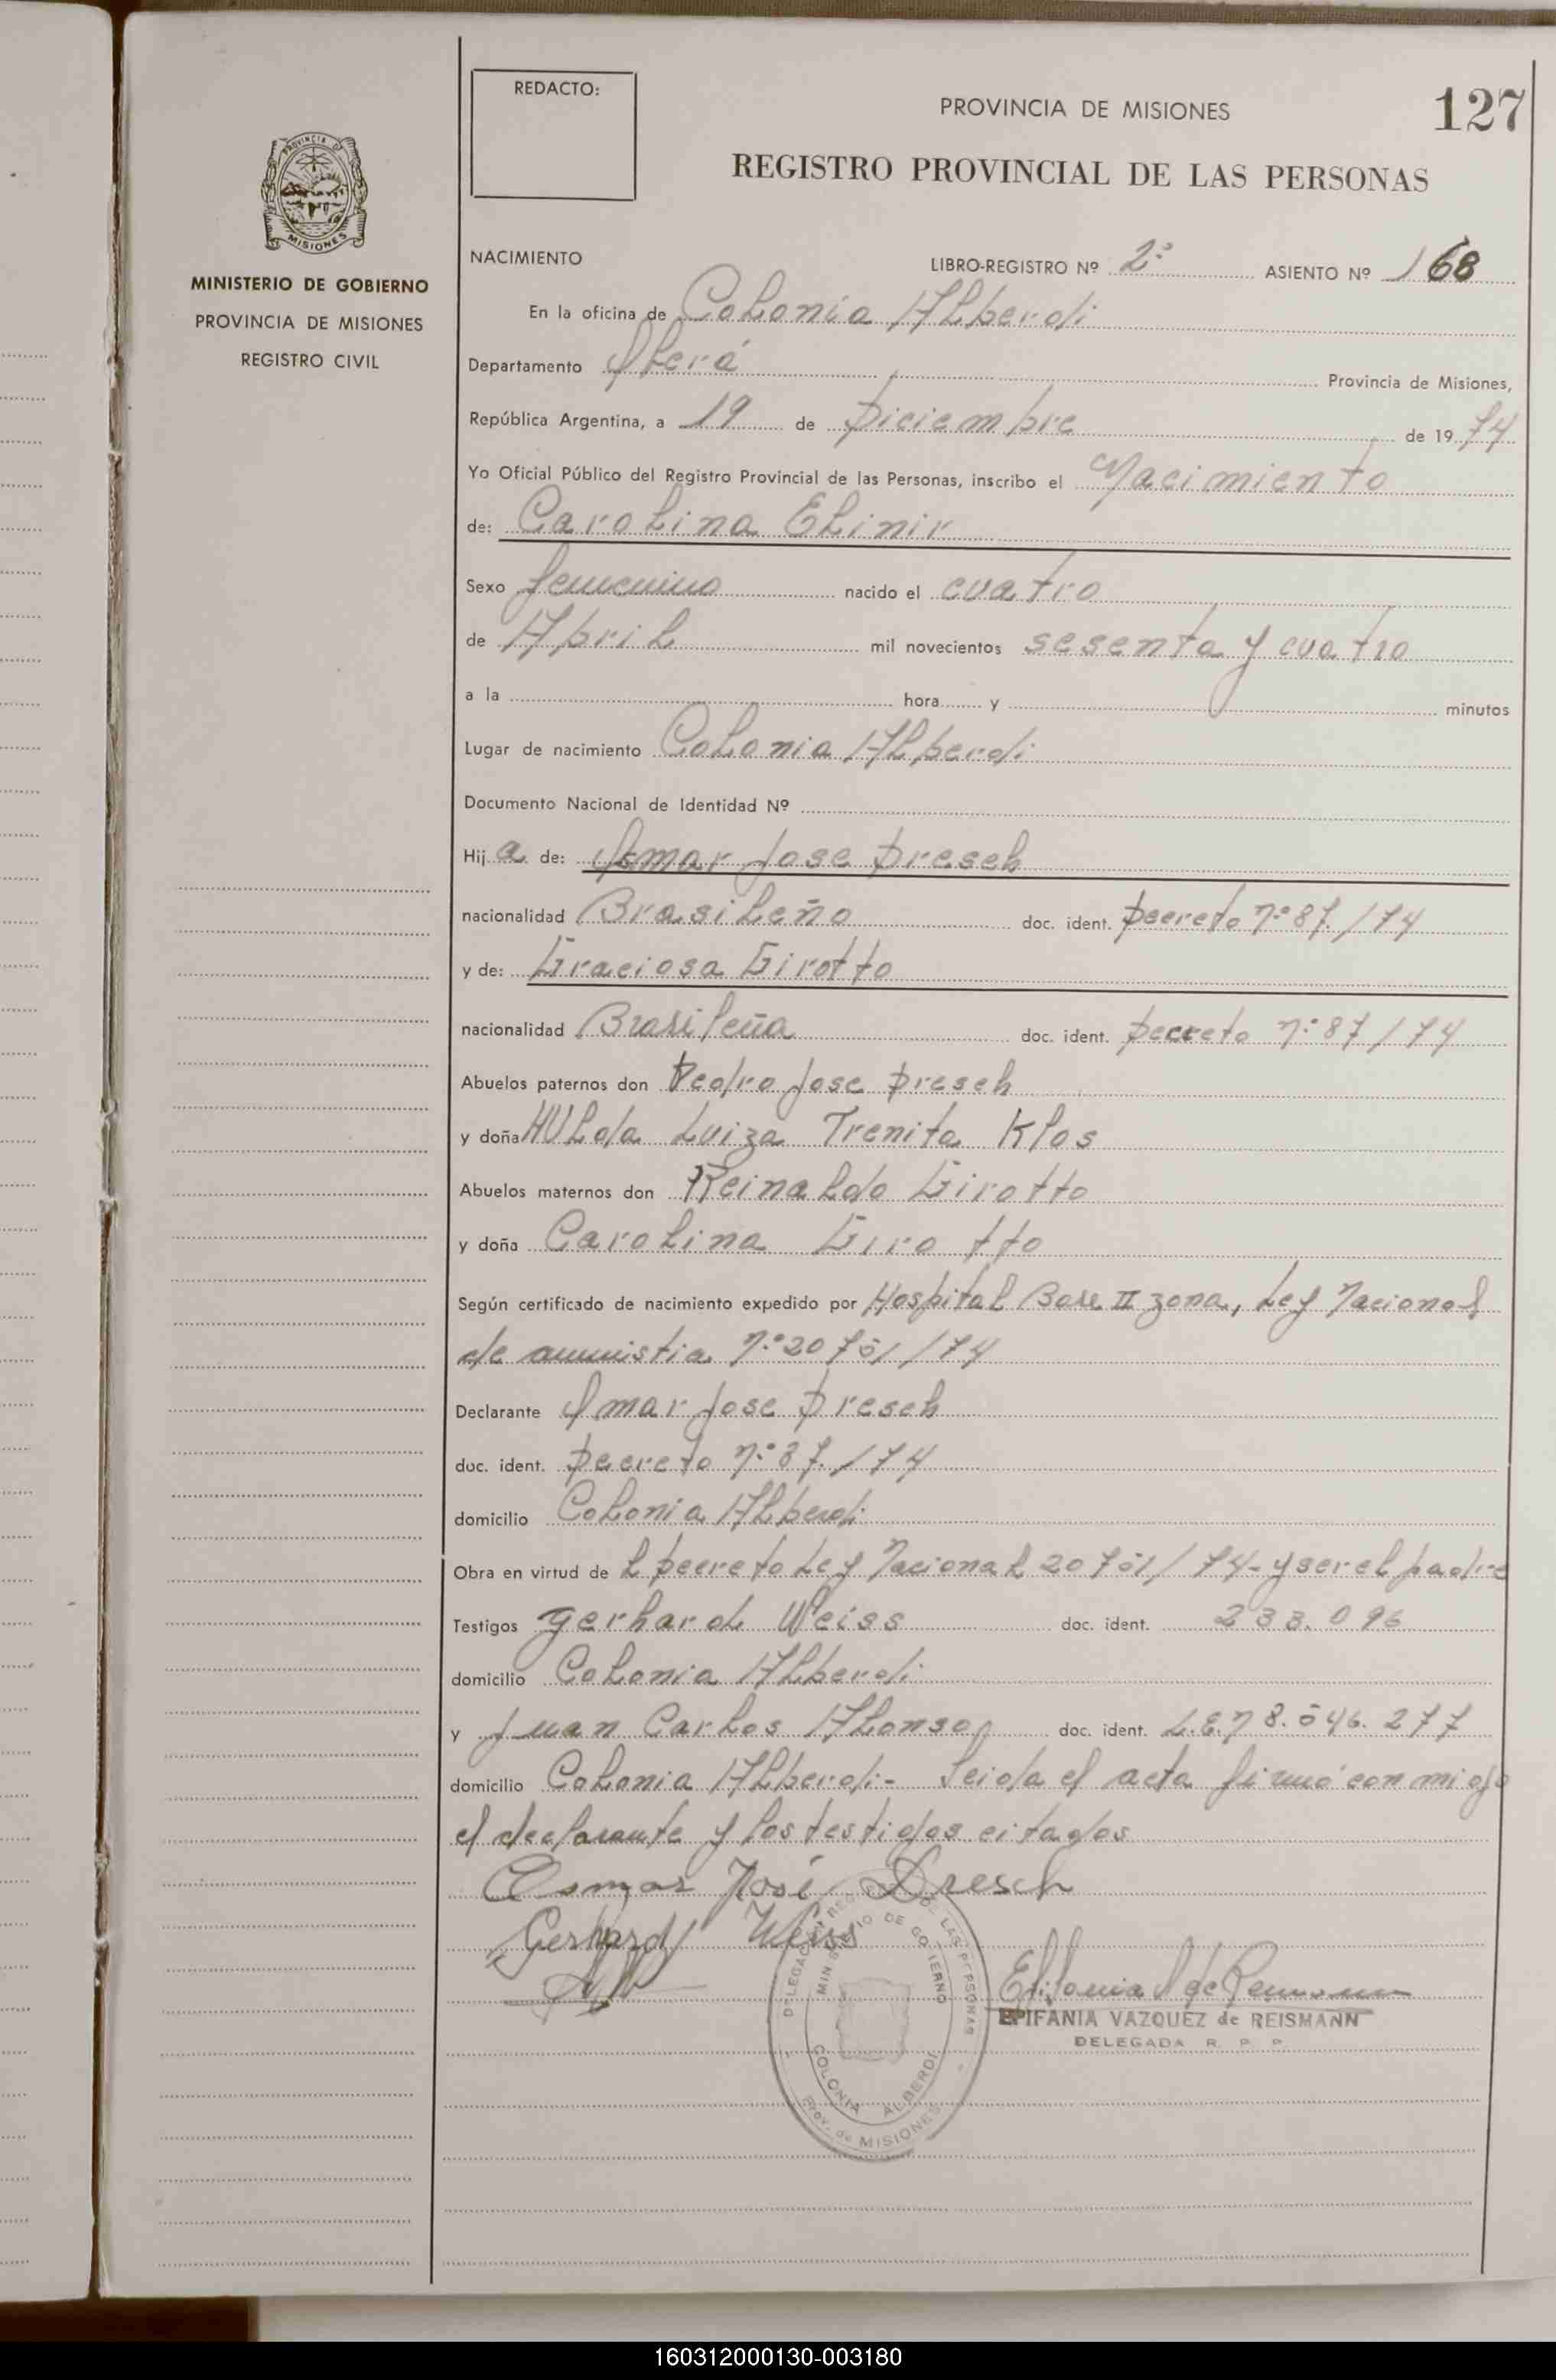 REDACTO:
PROVINCIA DE MISIONES
127
REGISTRO PROVINCIAL DE LAS PERSONAS
PROVINCIA DE
MISIONES
MINISTERIO DE GOBIERNO
PROVINCIA DE MISIONES
REGISTRO CIVIL
NACIMIENTO
LIBRO-REGISTRO Nº 2º ASIENTO Nº 168
En la oficina de Colonia Alberdi
Departamento Oberá Provincia de Misiones,
República Argentina, a 19 de Diciembre de 1974
Yo Oficial Público del Registro Provincial de las Personas, inscribo el Nacimiento
de: Carolina Elinir
Sexo femenino nacido el cuatro
de Abril mil novecientos sesenta y cuatro
a la hora y minutos
Lugar de nacimiento Colonia Alberdi
Documento Nacional de Identidad Nº
Hija de: Osmar Jose Dresch
nacionalidad Brasileño doc. ident. Decreto nº 87/74
y de: Graciosa Girotto
nacionalidad Brasileña doc. ident. Decreto nº 87/74
Abuelos paternos don Pedro Jose Dresch
y doña HUlda Luiza Trenita Klos
Abuelos maternos don Reinaldo Girotto
y doña Carolina Girotto
Según certificado de nacimiento expedido por Hospital Base II zona, Ley Nacional
de amnistia nº 20751/74
Declarante Omar Jose Dresch
doc. ident. Decreto nº 87/74
domicilio Colonia Alberdi
Obra en virtud del Decreto Ley Nacional 20751/74- y ser el padre
Testigos Gerhard Weiss doc. ident. 233.096
domicilio Colonia Alberdi
y Juan Carlos Alonso doc. ident. L.E. nº 8.546.277
domicilio Colonia Alberdi- Leida el acta firmó conmigo
el declarante y los testigos citados
Osmar José Dresch
Gerhard Weiss
EPIFANIA VAZQUEZ de REISMANN
DELEGADA R. P. P.
MINISTERIO DE GOBIERNO
COLONIA ALBERDI
Prov. de MISIONES
160312000130-003180